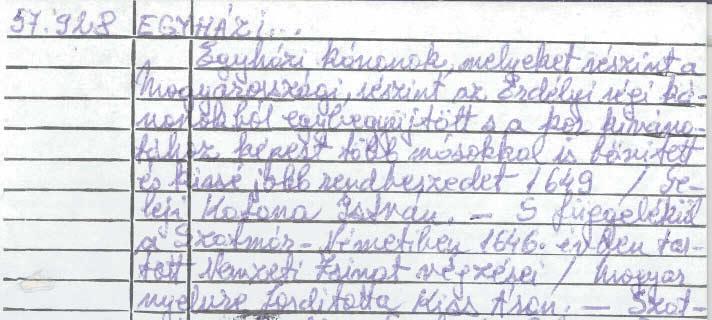 57.928 EGYHÁZI...
Egyházi kánonok, melyeket részint a
Magyarországi, részint az Erdélyi régi ká-
nonokból egybegyüjtött s a kor kivána-
tához képest több másokkal is bővített
és kissé jobb rendbeszedet 1649 / Ge-
leji Katona István. — S függelékül
a Szatmár-Németiben 1646. évben tar-
tott Nemzeti Zsinat végzései / magyar
nyelvre fordította Kiss Áron. — Szat-